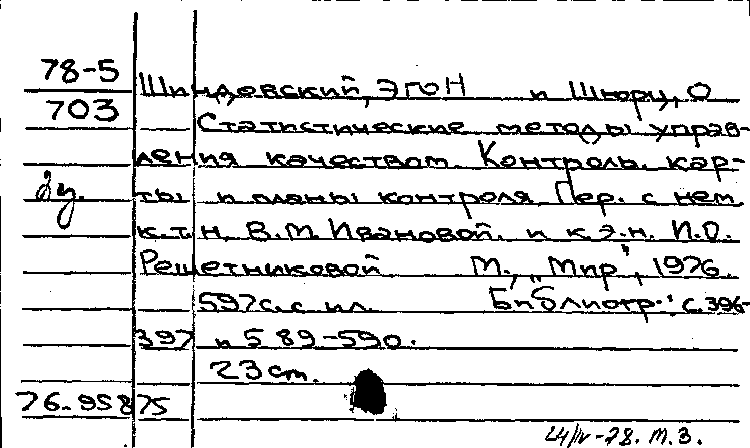 78-5
703
2у.
Шиндовский, Эгон и Шюрц, О
Статистические методы управ-
ления качеством. Контроль. кар-
ты и планы контроля. Пер. с нем
к.т.н. В.М. Ивановой. и к.э.н. И.О.
Решетниковой М., „Мир", 1976.
597с. с ил. Библиогр.: с. 396-
397 и 589-590.
23 см.
76-95875
24/IV-78. М.З.